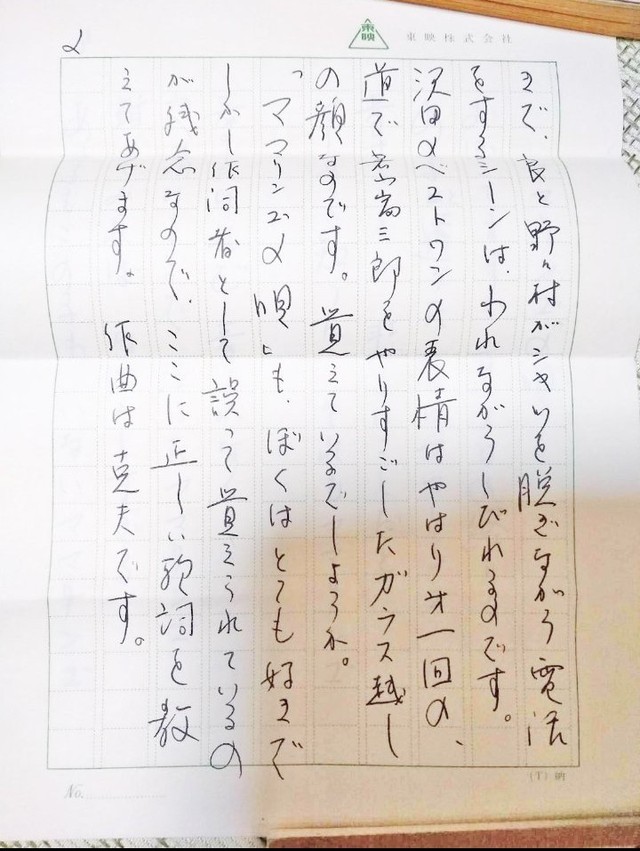 2
東映
東映株式会社
まで、良と野々村がシャツを脱ぎながら電話
をするシーンは、われながらしびれるのです。
沢田のベストワンの表情はやはり才一回の、
道で三郎をやりすごしたガラス越し
の顔なのです。覚えているでしょうか。
「ママリンゴの唄」も、ぼくはとても好きで
しかし作詞者として誤って覚えられているの
が残念なので、ここに正しい歌詞を教
えてあげます。作曲は克夫です。
No.
(T)納